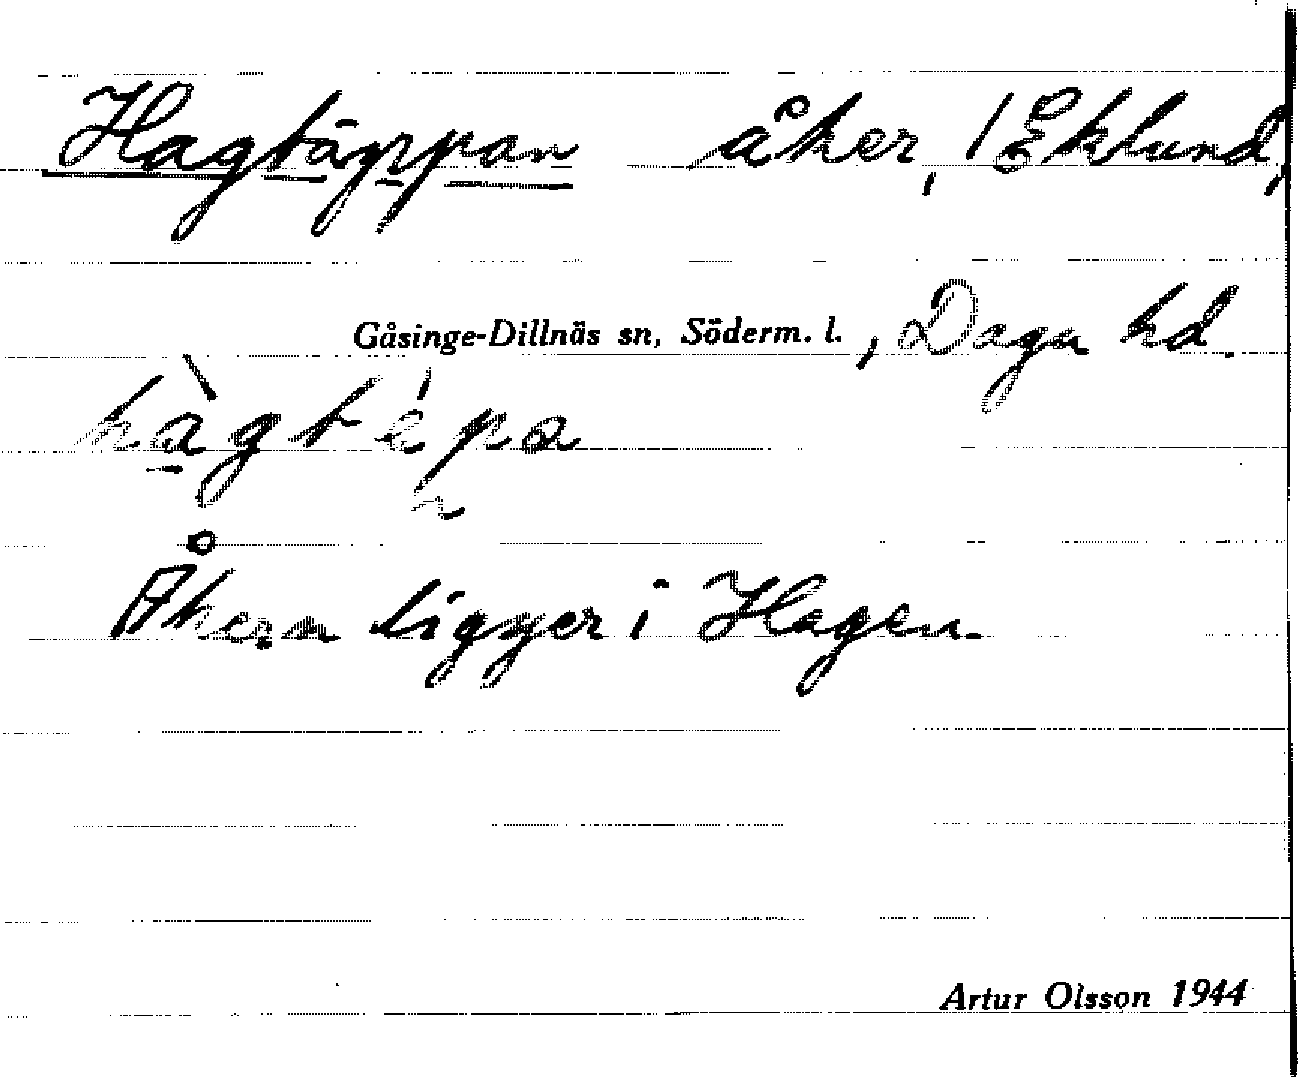 Hagtäppan åker, 1 Eklund,
Gåsinge-Dillnäs sn, Söderm. l., Daga hd.
Åkern ligger i Hagen.
Artur Olsson 1944